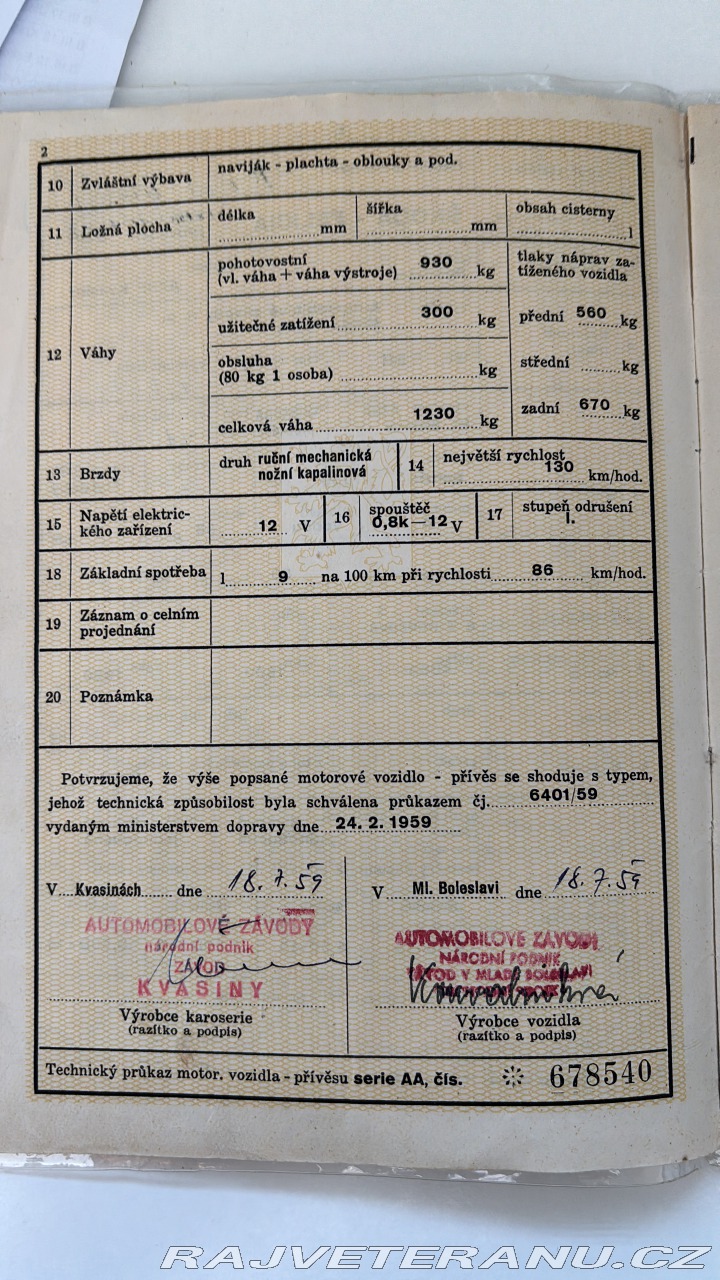 2
10 Zvláštní výbava naviják - plachta - oblouky a pod.
11 Ložná plocha délka mm šířka mm obsah cisterny l
12 Váhy
pohotovostní
(vl. váha + váha výstroje) 930 kg
užitečné zatížení 300 kg
obsluha
(80 kg 1 osoba) kg
celková váha 1230 kg
tlaky náprav za-
tíženého vozidla
přední 560 kg
střední kg
zadní 670 kg
13 Brzdy druh ruční mechanická
nožní kapalinová
14 největší rychlost
130 km/hod.
15 Napětí elektric-
kého zařízení 12 V
16 spouštěč
0,8k—12 V
17 stupeň odrušení
I.
18 Základní spotřeba l 9 na 100 km při rychlosti 86 km/hod.
19 Záznam o celním
projednání
20 Poznámka
Potvrzujeme, že výše popsané motorové vozidlo - přívěs se shoduje s typem,
jehož technická způsobilost byla schválena průkazem čj. 6401/59
vydaným ministerstvem dopravy dne 24. 2. 1959
V Kvasinách dne 18. 7. 59
AUTOMOBILOVÉ ZÁVODY
národní podnik
ZÁVOD
KVASINY
Výrobce karoserie
(razítko a podpis)
V Ml. Boleslavi dne 18. 7. 59
AUTOMOBILOVÉ ZÁVODY
NÁRODNÍ PODNIK
ZÁVOD V MLADÉ BOLESLAVI
Výrobce vozidla
(razítko a podpis)
Technický průkaz motor. vozidla - přívěsu serie AA, čís. 678540
RAJVETERANU.CZ